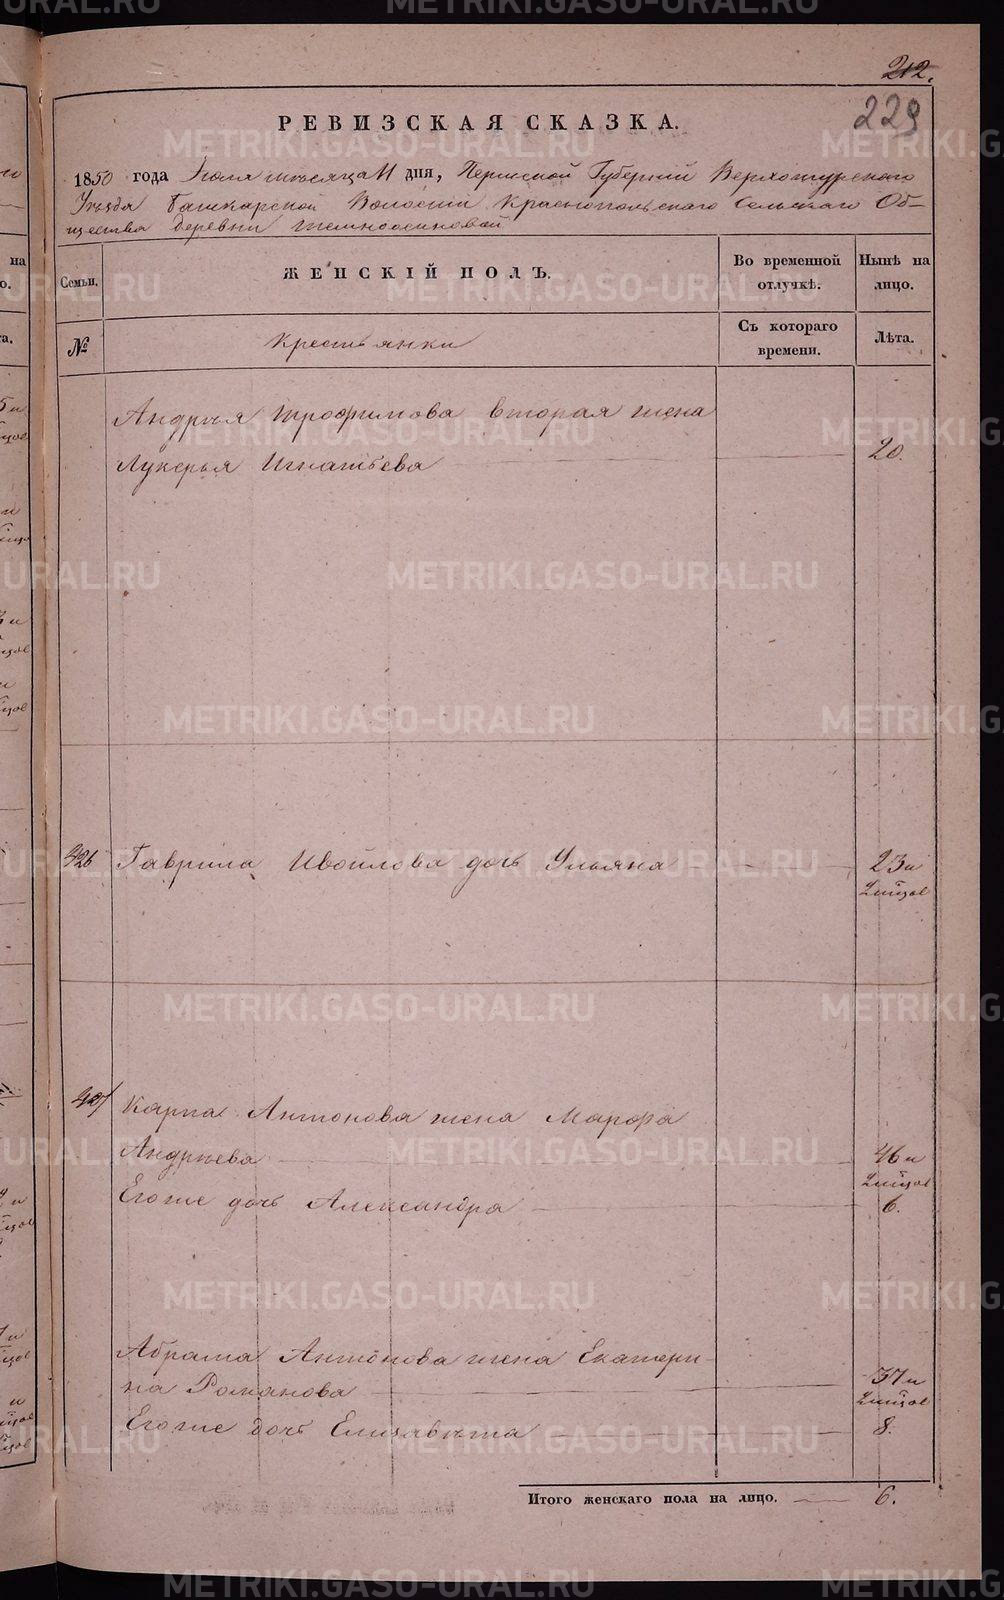 212.
229
РЕВИЗСКАЯ СКАЗКА.
1850 года Іюля мѣсяца 11 дня, Пермской Губерніи Верхотурскаго
Уѣзда Башкарской Волости Краснопольскаго Сельскаго Об-
щества деревни Темноосиновой
Семьи.
ЖЕНСКІЙ ПОЛЪ.
Во временной
отлучкѣ.
Нынѣ на
лицо.
№
Крестьянки
Съ котораго
времени.
Лѣта.
Андрея Трофимова вторая жена
Лукерья Игнатьева 20.
426 Гаврила Ивойлова дочь Ульяна 23 и
Карпа Антонова жена Марфа
Андреева 46 и
Егоже дочь Александра 6.
Абрама Антонова жена Екатери-
на Романова 37 и
Егоже дочь Елизавѣта 8.
Итого женскаго пола на лицо. 6.
METRIKI.GASO-URAL.RU